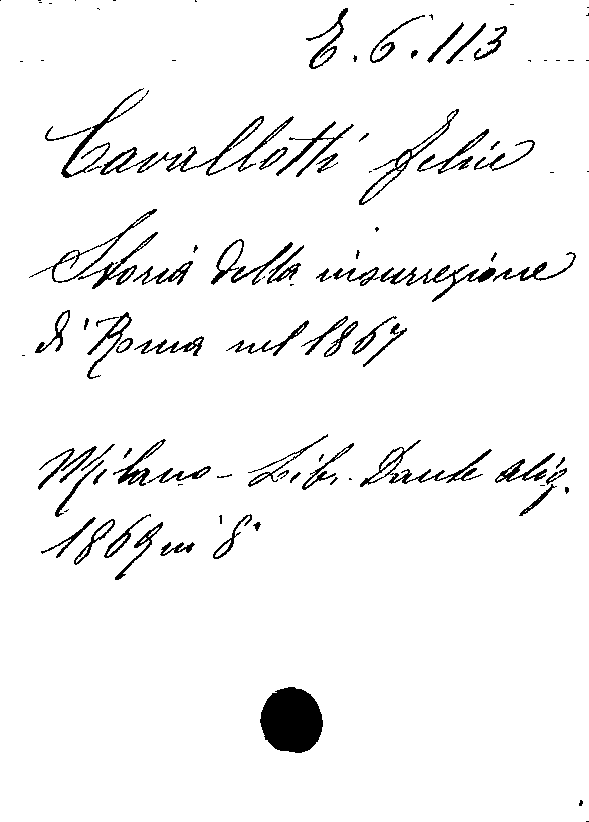 E. 6. 113
Cavallotti Felice
Storia della insurrezione
di Roma nel 1867
Milano - Libr. Dante Alig.
1869 in 8°